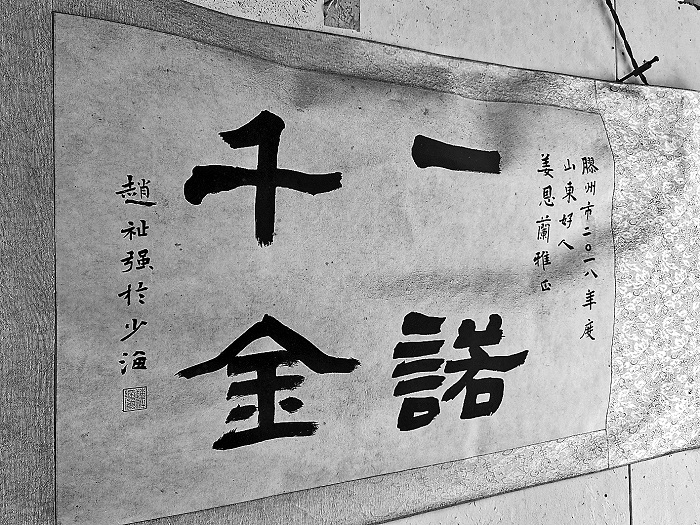 膠州市二〇一八年度
山東好人
姜恩蘭雅正
一諾
千金
趙祉强於少海